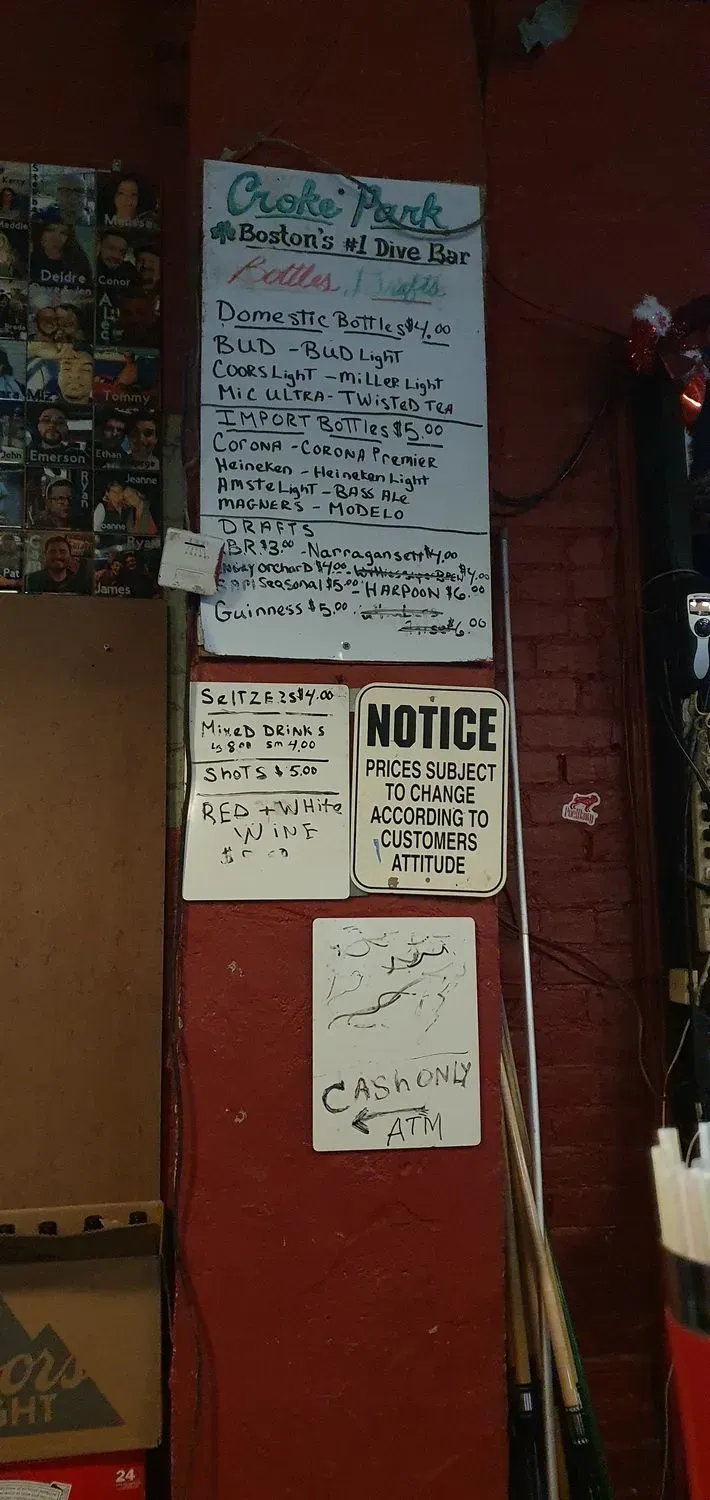 Croke Park
Boston's #1 Dive Bar
Bottles, Drafts
Domestic Bottles $4.00
BUD - BUD Light
COORS Light - MILLER Light
MIC ULTRA - TWISTED TEA
IMPORT Bottles $5.00
CORONA - CORONA Premier
Heineken - Heineken Light
AmsteLight - BASS Ale
MAGNERS - MODELO
DRAFTS
BR $3.00 - Narragansett $4.00
Orchard $4.00 $4.00
Seasonal $5.00 - HARPOON $6.00
Guinness $5.00
$6.00
SelTZERS $4.00
Mixed DRINKS
LG 8.00 Sm 4.00
Shots $5.00
RED + White
WINE
NOTICE
PRICES SUBJECT
TO CHANGE
ACCORDING TO
CUSTOMERS
ATTITUDE
CASH ONLY
ATM
Kerry
Maddie
Melissa
Deidre
Conor
Alec
Tommy
John
Emerson
Ethan
Ryan
Jeanne
Joanne
Pat
Ryan
James
ors
GHT
24